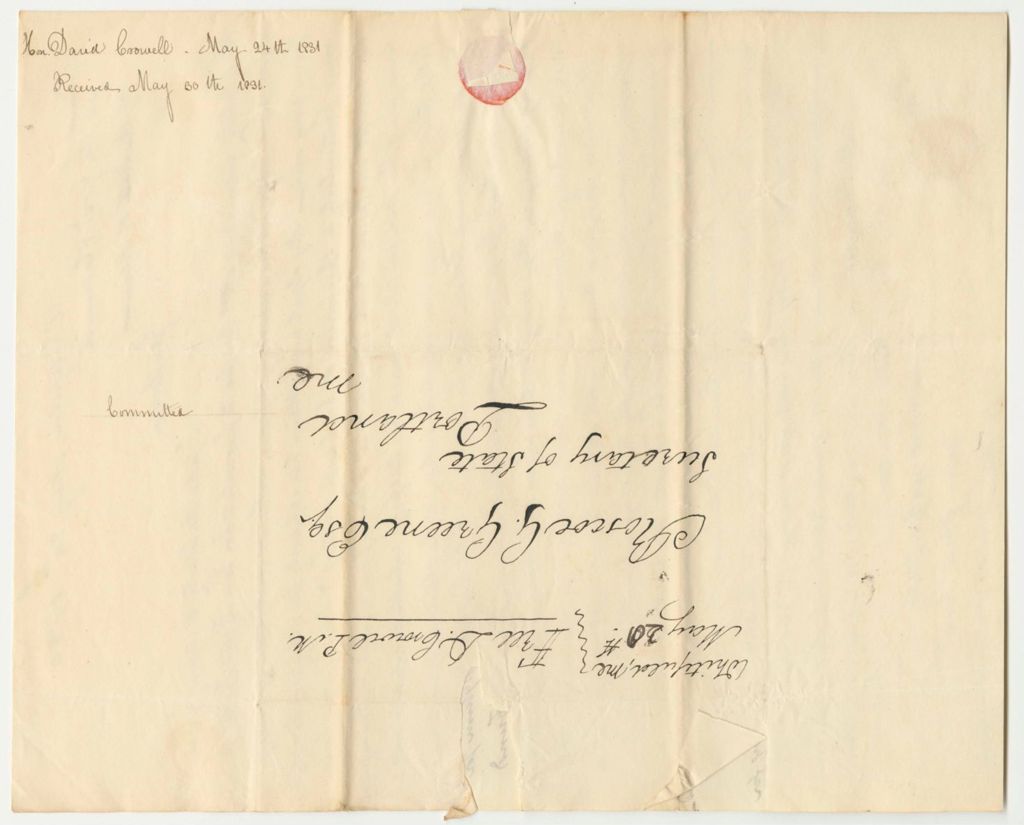 Hon. David Crowell - May 24th 1831
Received May 30th 1831.
Committed
Whitefield, me
May 20th.
Free D. Crowell P.M.
Roscoe G. Greene Esq.
Secretary of State
Portland
me